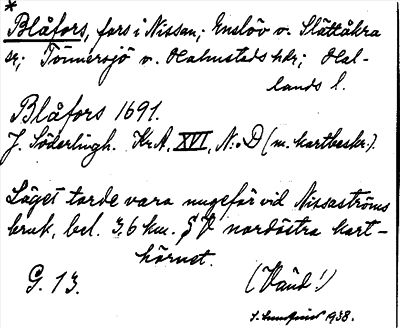 *
Blåfors, fors i Nissan; Enslöv o. Slättåkra
sr; Tönnersjö o. Halmstads hdr; Hal-
lands l.
Blåfors 1691.
J. Söderlingh. Kr.A. XVI, N:o D (m. kartbeskr.).
Läget torde vara ungefär vid Nissaströms
bruk, bel. 3,6 km. SV nordöstra kart-
hörnet.
G. 13. (Vänd!)
1938.